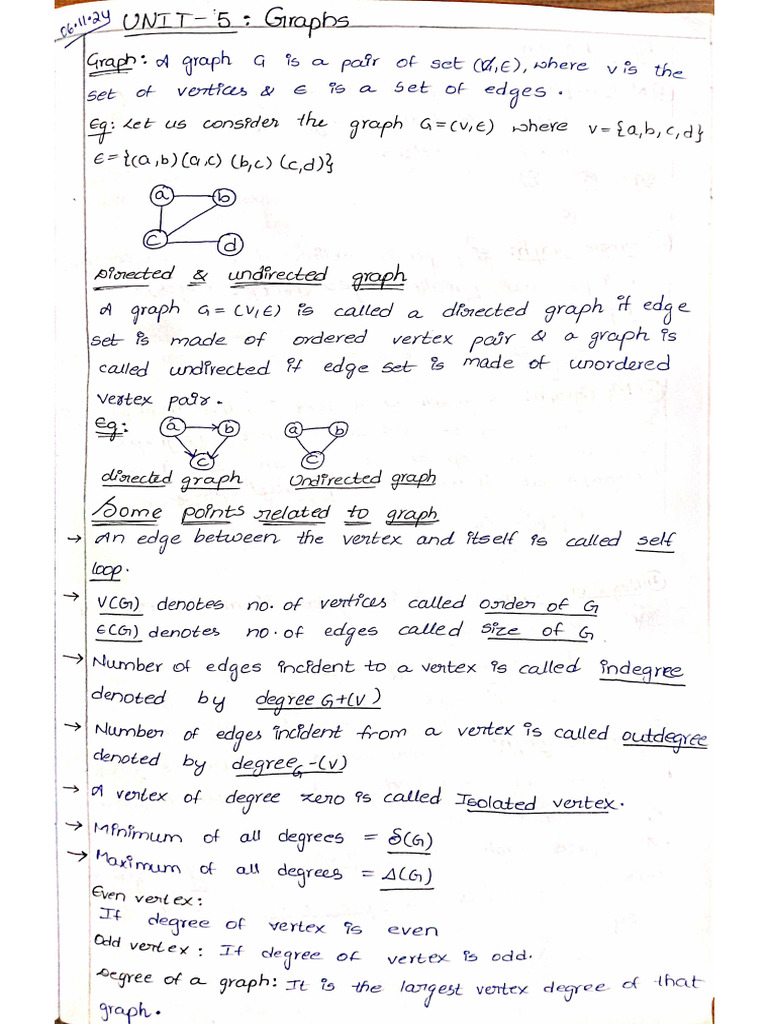 06.11.24
UNIT-5: Graphs
Graph: A graph G is a pair of set (V,E), where v is the
set of vertices & E is a set of edges.
Eg: Let us consider the graph G=(V,E) where v={a,b,c,d}
E={(a,b)(a,c)(b,c)(c,d)}
a b
c d
Directed & undirected graph
A graph G=(V,E) is called a directed graph if edge
set is made of ordered vertex pair & a graph is
called undirected if edge set is made of unordered
vertex pair.
Eg: a b a b
c c
directed graph Undirected graph
Some points related to graph
→ An edge between the vertex and itself is called self
loop.
→ V(G) denotes no. of vertices called order of G
E(G) denotes no. of edges called size of G
→ Number of edges incident to a vertex is called indegree
denoted by degree G+(V)
→ Number of edges incident from a vertex is called outdegree
denoted by degree G-(V)
→ A vertex of degree zero is called Isolated vertex.
→ Minimum of all degrees = δ(G)
→ Maximum of all degrees = Δ(G)
Even vertex:
If degree of vertex is even
Odd vertex: If degree of vertex is odd.
Degree of a graph: It is the largest vertex degree of that
graph.